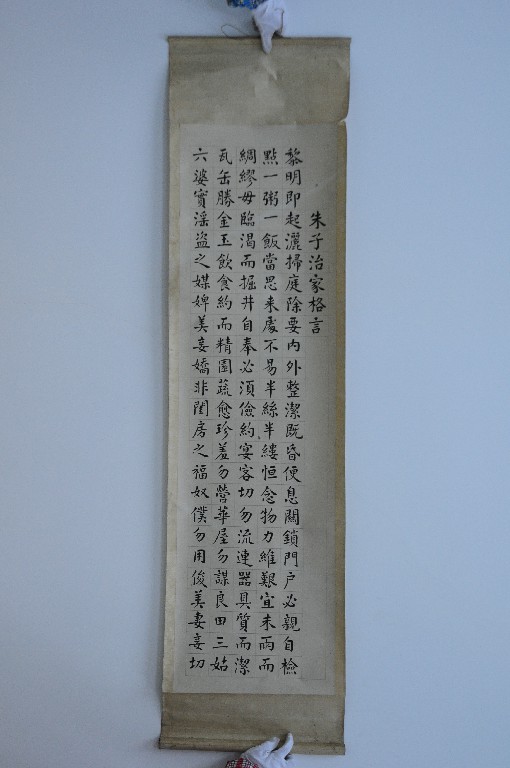 朱子治家格言
黎明即起灑掃庭除要内外整潔既昏便息關鎖門户必親自檢
點一粥一飯當思来處不易半絲半縷恒念物力維艱宜未雨而
綢繆毋臨渴而掘井自奉必須儉約宴客切勿流連器具質而潔
瓦缶勝金玉飲食約而精園蔬愈珍羞勿營華屋勿謀良田三姑
六婆實淫盗之媒婢美妾嬌非閨房之福奴僕勿用俊美妻妾切